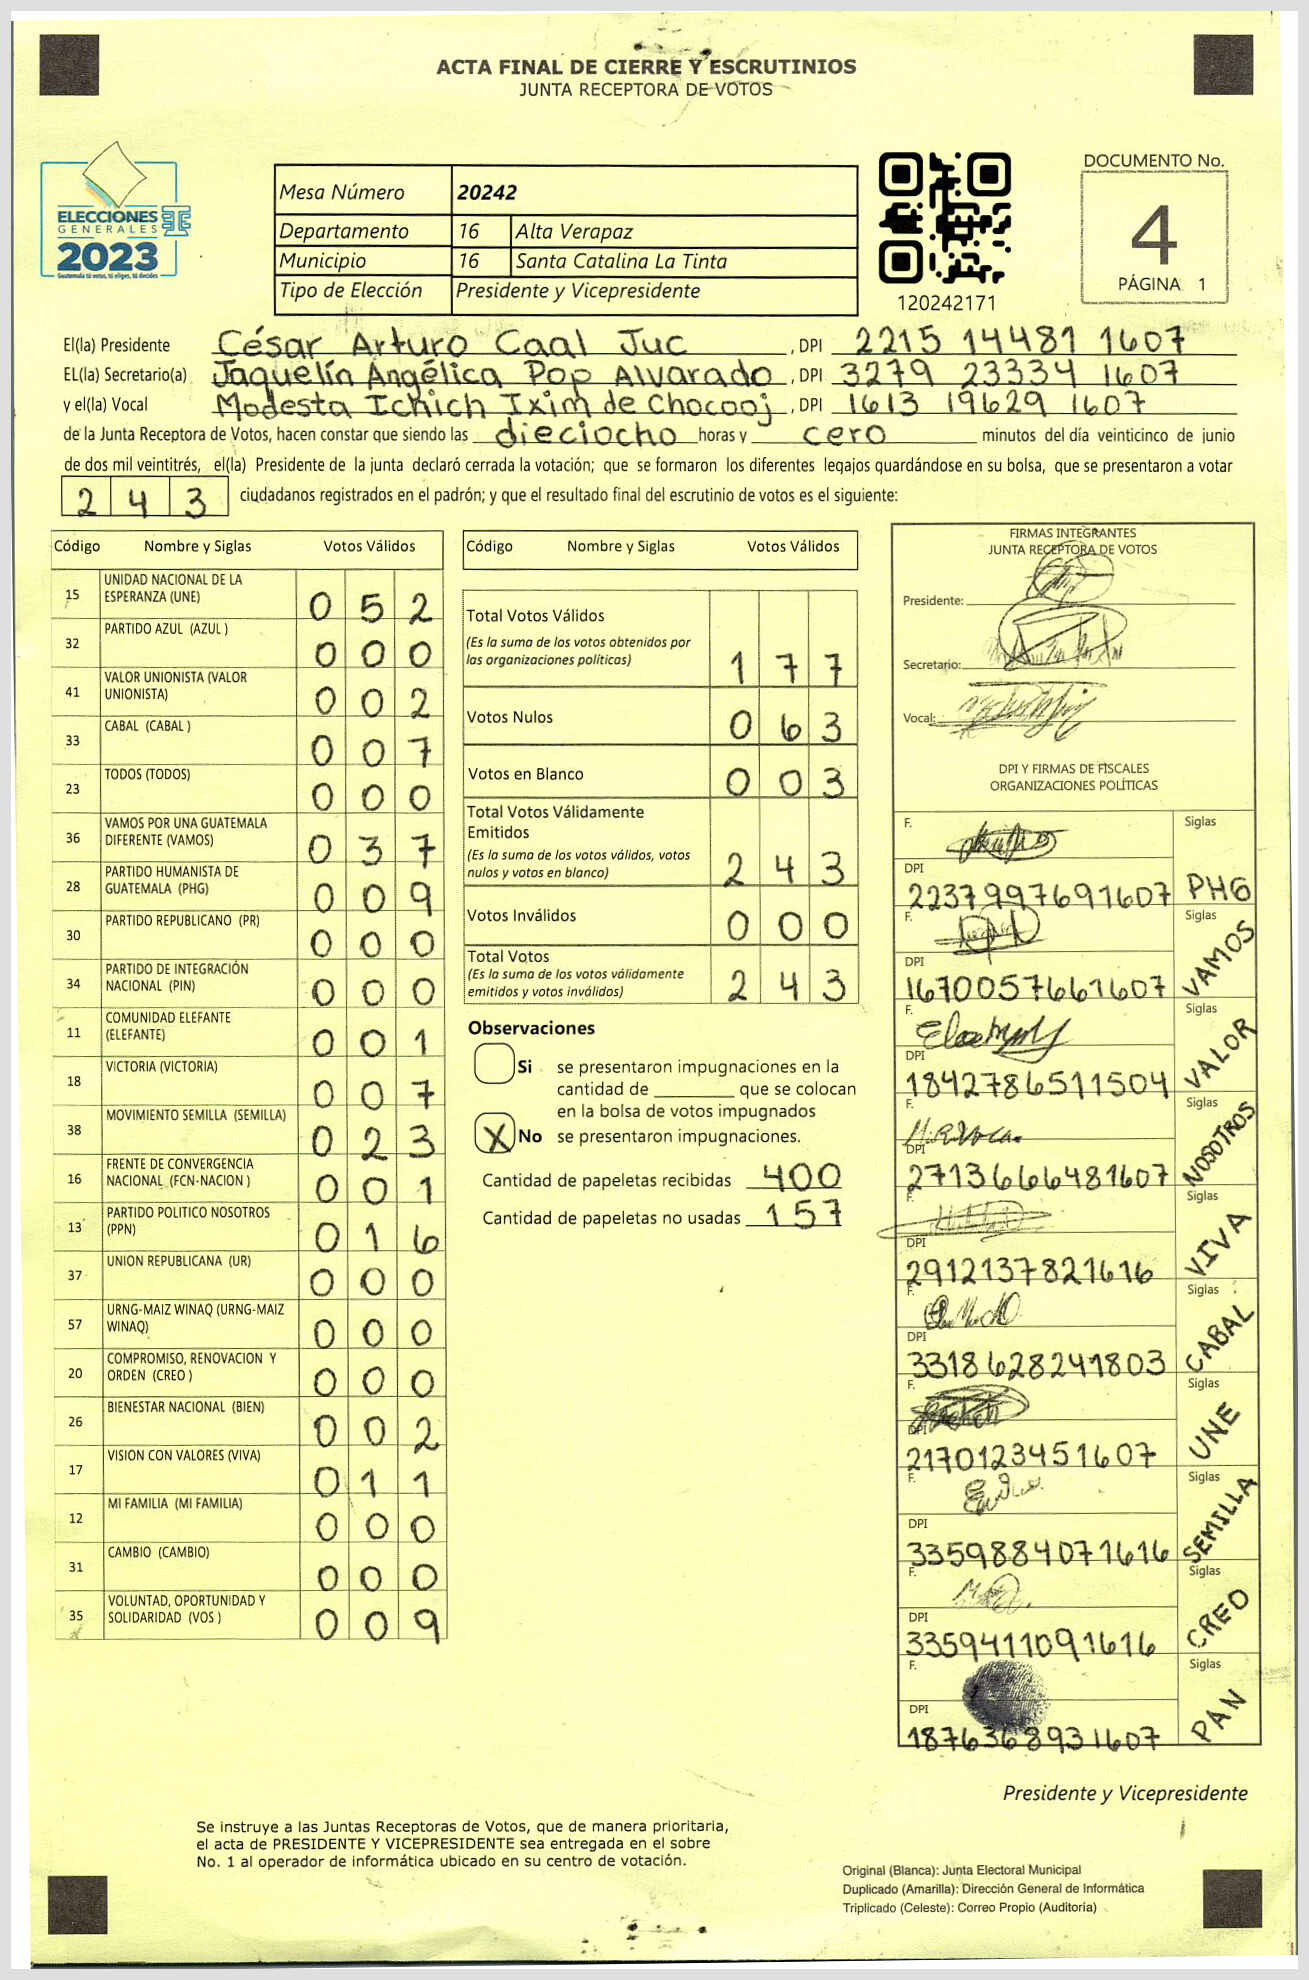 ACTA FINAL DE CIERRE Y ESCRUTINIOS
JUNTA RECEPTORA DE VOTOS
ELECCIONES
GENERALES
2023
Guatemala tú votas, tú eliges, tú decides
Mesa Número 20242
Departamento 16 Alta Verapaz
Municipio 16 Santa Catalina La Tinta
Tipo de Elección Presidente y Vicepresidente
120242171
DOCUMENTO No.
4
PÁGINA 1
El(la) Presidente César Arturo Caal Juc, DPI 2215 14481 1607
EL(la) Secretario(a) Jaquelín Angélica Pop Alvarado, DPI 3279 23334 1607
y el(la) Vocal Modesta Ichich Ixim de Chocooj, DPI 1613 19629 1607
de la Junta Receptora de Votos, hacen constar que siendo las dieciocho horas y cero minutos del día veinticinco de junio
de dos mil veintitrés, el(la) Presidente de la junta declaró cerrada la votación; que se formaron los diferentes legajos guardándose en su bolsa, que se presentaron a votar
243 ciudadanos registrados en el padrón; y que el resultado final del escrutinio de votos es el siguiente:
Código Nombre y Siglas Votos Válidos
15 UNIDAD NACIONAL DE LA ESPERANZA (UNE) 052
32 PARTIDO AZUL (AZUL ) 000
41 VALOR UNIONISTA (VALOR UNIONISTA) 002
33 CABAL (CABAL ) 007
23 TODOS (TODOS) 000
36 VAMOS POR UNA GUATEMALA DIFERENTE (VAMOS) 037
28 PARTIDO HUMANISTA DE GUATEMALA (PHG) 009
30 PARTIDO REPUBLICANO (PR) 000
34 PARTIDO DE INTEGRACIÓN NACIONAL (PIN) 000
11 COMUNIDAD ELEFANTE (ELEFANTE) 001
18 VICTORIA (VICTORIA) 007
38 MOVIMIENTO SEMILLA (SEMILLA) 023
16 FRENTE DE CONVERGENCIA NACIONAL (FCN-NACION ) 001
13 PARTIDO POLITICO NOSOTROS (PPN) 016
37 UNION REPUBLICANA (UR) 000
57 URNG-MAIZ WINAQ (URNG-MAIZ WINAQ) 000
20 COMPROMISO, RENOVACION Y ORDEN (CREO ) 000
26 BIENESTAR NACIONAL (BIEN) 002
17 VISION CON VALORES (VIVA) 011
12 MI FAMILIA (MI FAMILIA) 000
31 CAMBIO (CAMBIO) 000
35 VOLUNTAD, OPORTUNIDAD Y SOLIDARIDAD (VOS ) 009
Código Nombre y Siglas Votos Válidos
Total Votos Válidos 177
(Es la suma de los votos obtenidos por
las organizaciones políticas)
Votos Nulos 063
Votos en Blanco 003
Total Votos Válidamente
Emitidos 243
(Es la suma de los votos válidos, votos
nulos y votos en blanco)
Votos Inválidos 000
Total Votos 243
(Es la suma de los votos válidamente
emitidos y votos inválidos)
Observaciones
Si se presentaron impugnaciones en la
cantidad de ________ que se colocan
en la bolsa de votos impugnados
X No se presentaron impugnaciones.
Cantidad de papeletas recibidas 400
Cantidad de papeletas no usadas 157
FIRMAS INTEGRANTES
JUNTA RECEPTORA DE VOTOS
Presidente:
Secretario:
Vocal:
DPI Y FIRMAS DE FISCALES
ORGANIZACIONES POLÍTICAS
F. Siglas
DPI
2237997691607 PHG
F. Siglas
DPI
1670057661607 VAMOS
F. Siglas
DPI
1842786511504 VALOR
F. Siglas
DPI
2713666481607 NOSOTROS
F. Siglas
DPI
2912137821616 VIVA
F. Siglas
DPI
3318628241803 CABAL
F. Siglas
DPI
2170123451607 UNE
F. Siglas
DPI
3359884071616 SEMILLA
F. Siglas
DPI
3359411091616 CREO
F. Siglas
DPI
1876368931607 PAN
Presidente y Vicepresidente
Se instruye a las Juntas Receptoras de Votos, que de manera prioritaria,
el acta de PRESIDENTE Y VICEPRESIDENTE sea entregada en el sobre
No. 1 al operador de informática ubicado en su centro de votación.
Original (Blanca): Junta Electoral Municipal
Duplicado (Amarilla): Dirección General de Informática
Triplicado (Celeste): Correo Propio (Auditoría)